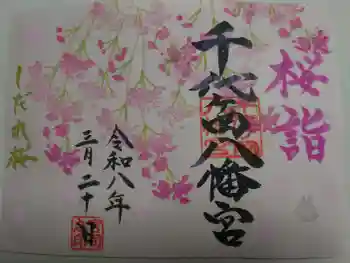 桜詣
千代田八幡宮
令和八年
三月二十日
しだれ桜